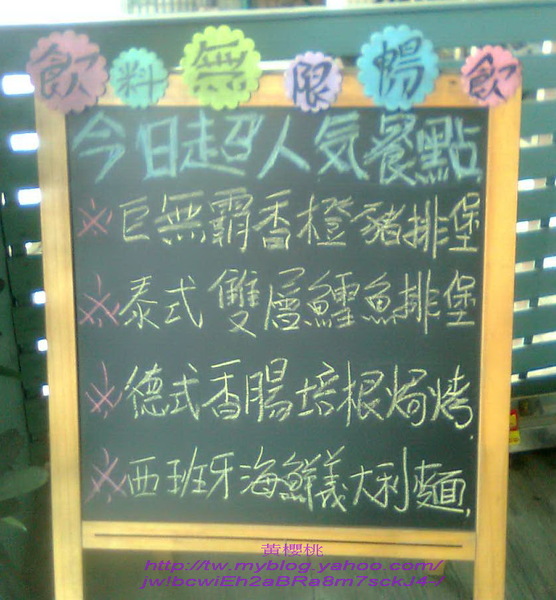 飲料無限暢飲
今日超人気餐點
※巨無霸香橙豬排堡
※泰式雙層鱈魚排堡
※德式香腸培根焗烤
※西班牙海鮮義大利麵
黃櫻桃
http://tw.myblog.yahoo.com/
jw!bcwiEh2aBRa8m7sckJ4-